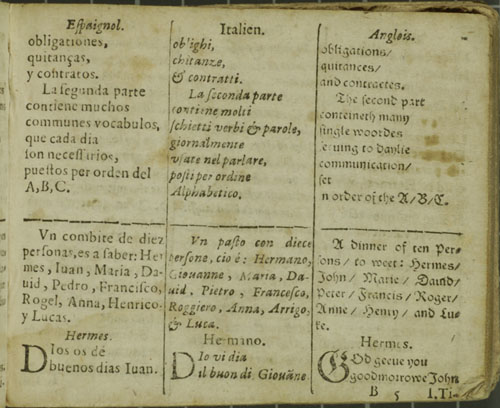 Espaignol.
obligationes,
quitanças,
y cõtratos.
La segunda parte
contiene muchos
communes vocabulos,
que cada dia
son necessarios,
puestos per orden del
A, B, C.
Vn combite de diez
personas, es a saber: Her
mes, Iuan, Maria, Da-
uid, Pedro, Francisco,
Rogel, Anna, Henrico,
y Lucas.
Hermes.
Dios os dé
buenos dias Iuan.
Italien.
ob'ighi,
chitanze,
& contratti.
La seconda parte
contiene molti
schietti verbi & parole,
giornalmente
vsate nel parlare,
posti per ordine
Alphabetico.
Vn pasto con diece
persone, cio é: Hermano,
Giouanne, Maria, Da-
uid, Pietro, Francesco,
Roggiero, Anna, Arrigo,
& Luca.
Hermano.
Dio vi dia
il buon di Giouãne
Anglois.
obligations/
quitances/
and contractes.
The second part
conteineth many
single woordes
seruing to daylie
communication/
set
in order of the A/B/C.
A dinner of ten Per-
sons/ to weet: Hermes/
John/ Marie/ Dauid/
Peter/ Francis/ Roger/
Anne/ Henry/ and Lu-
ke.
Hermes.
GOd geeue you
good morrowe John
B 5 I. Ti-